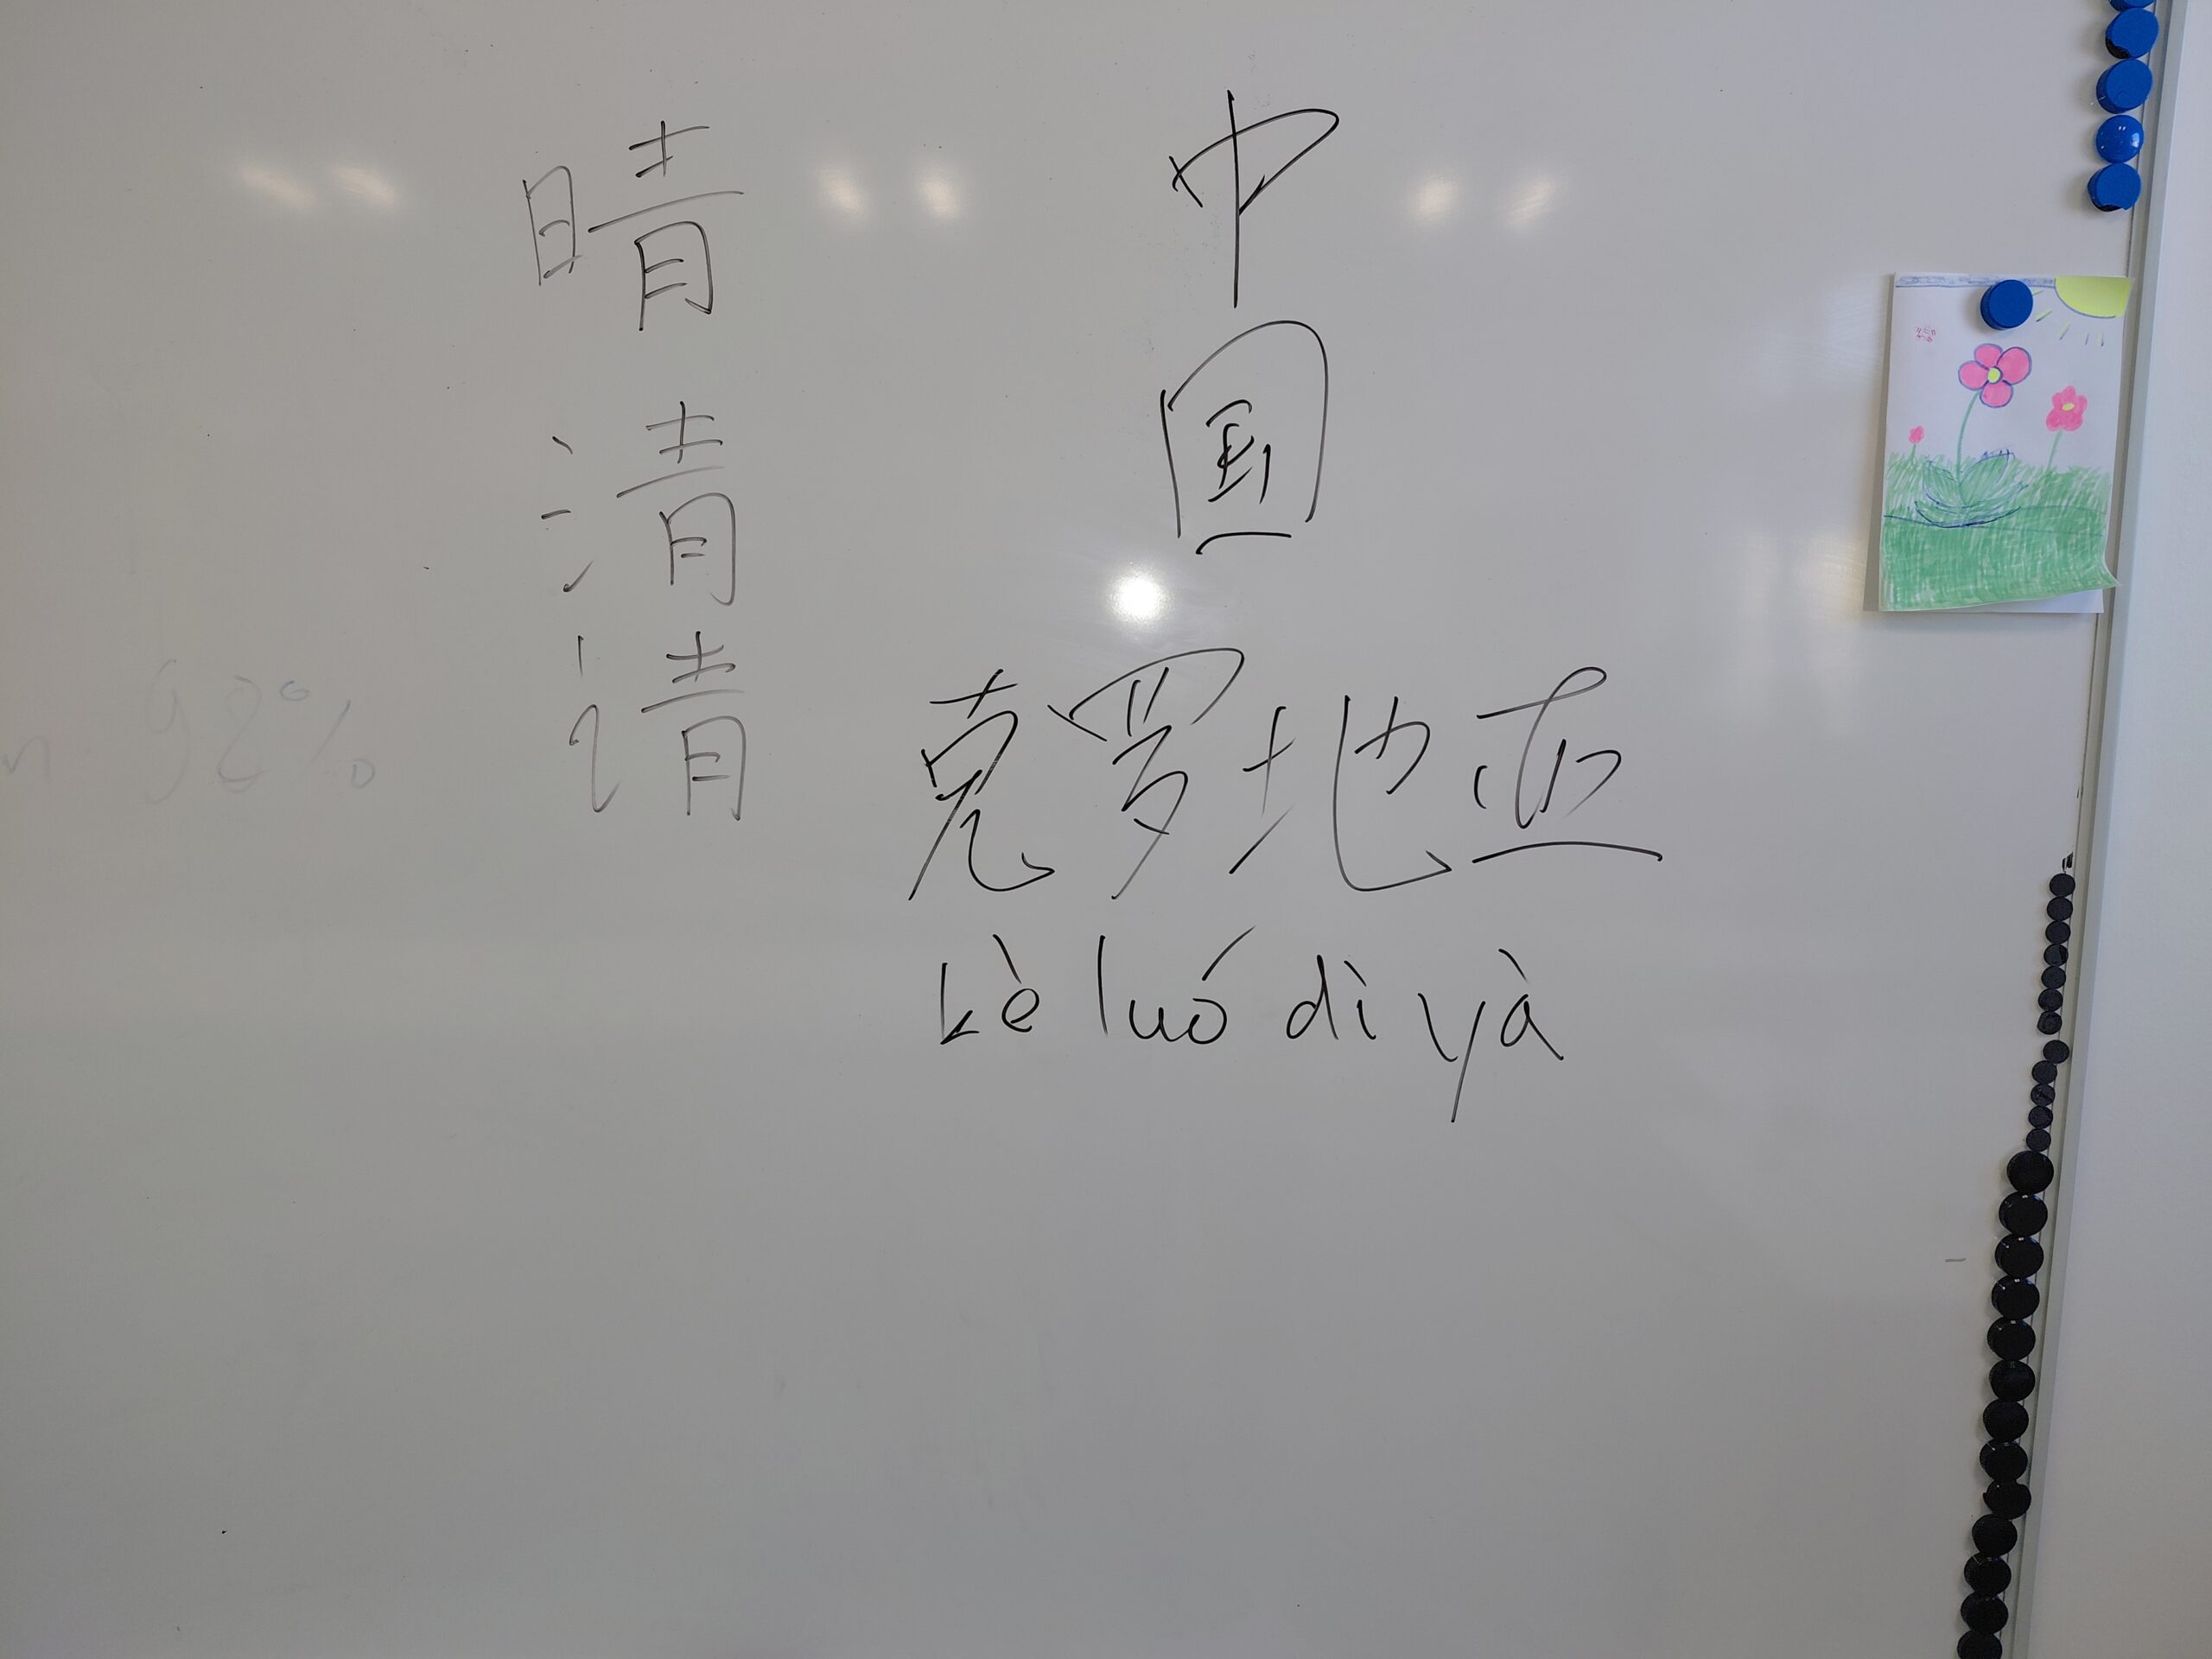 晴
清
请
中
国
克罗地亚
kè luó dì yà
92%